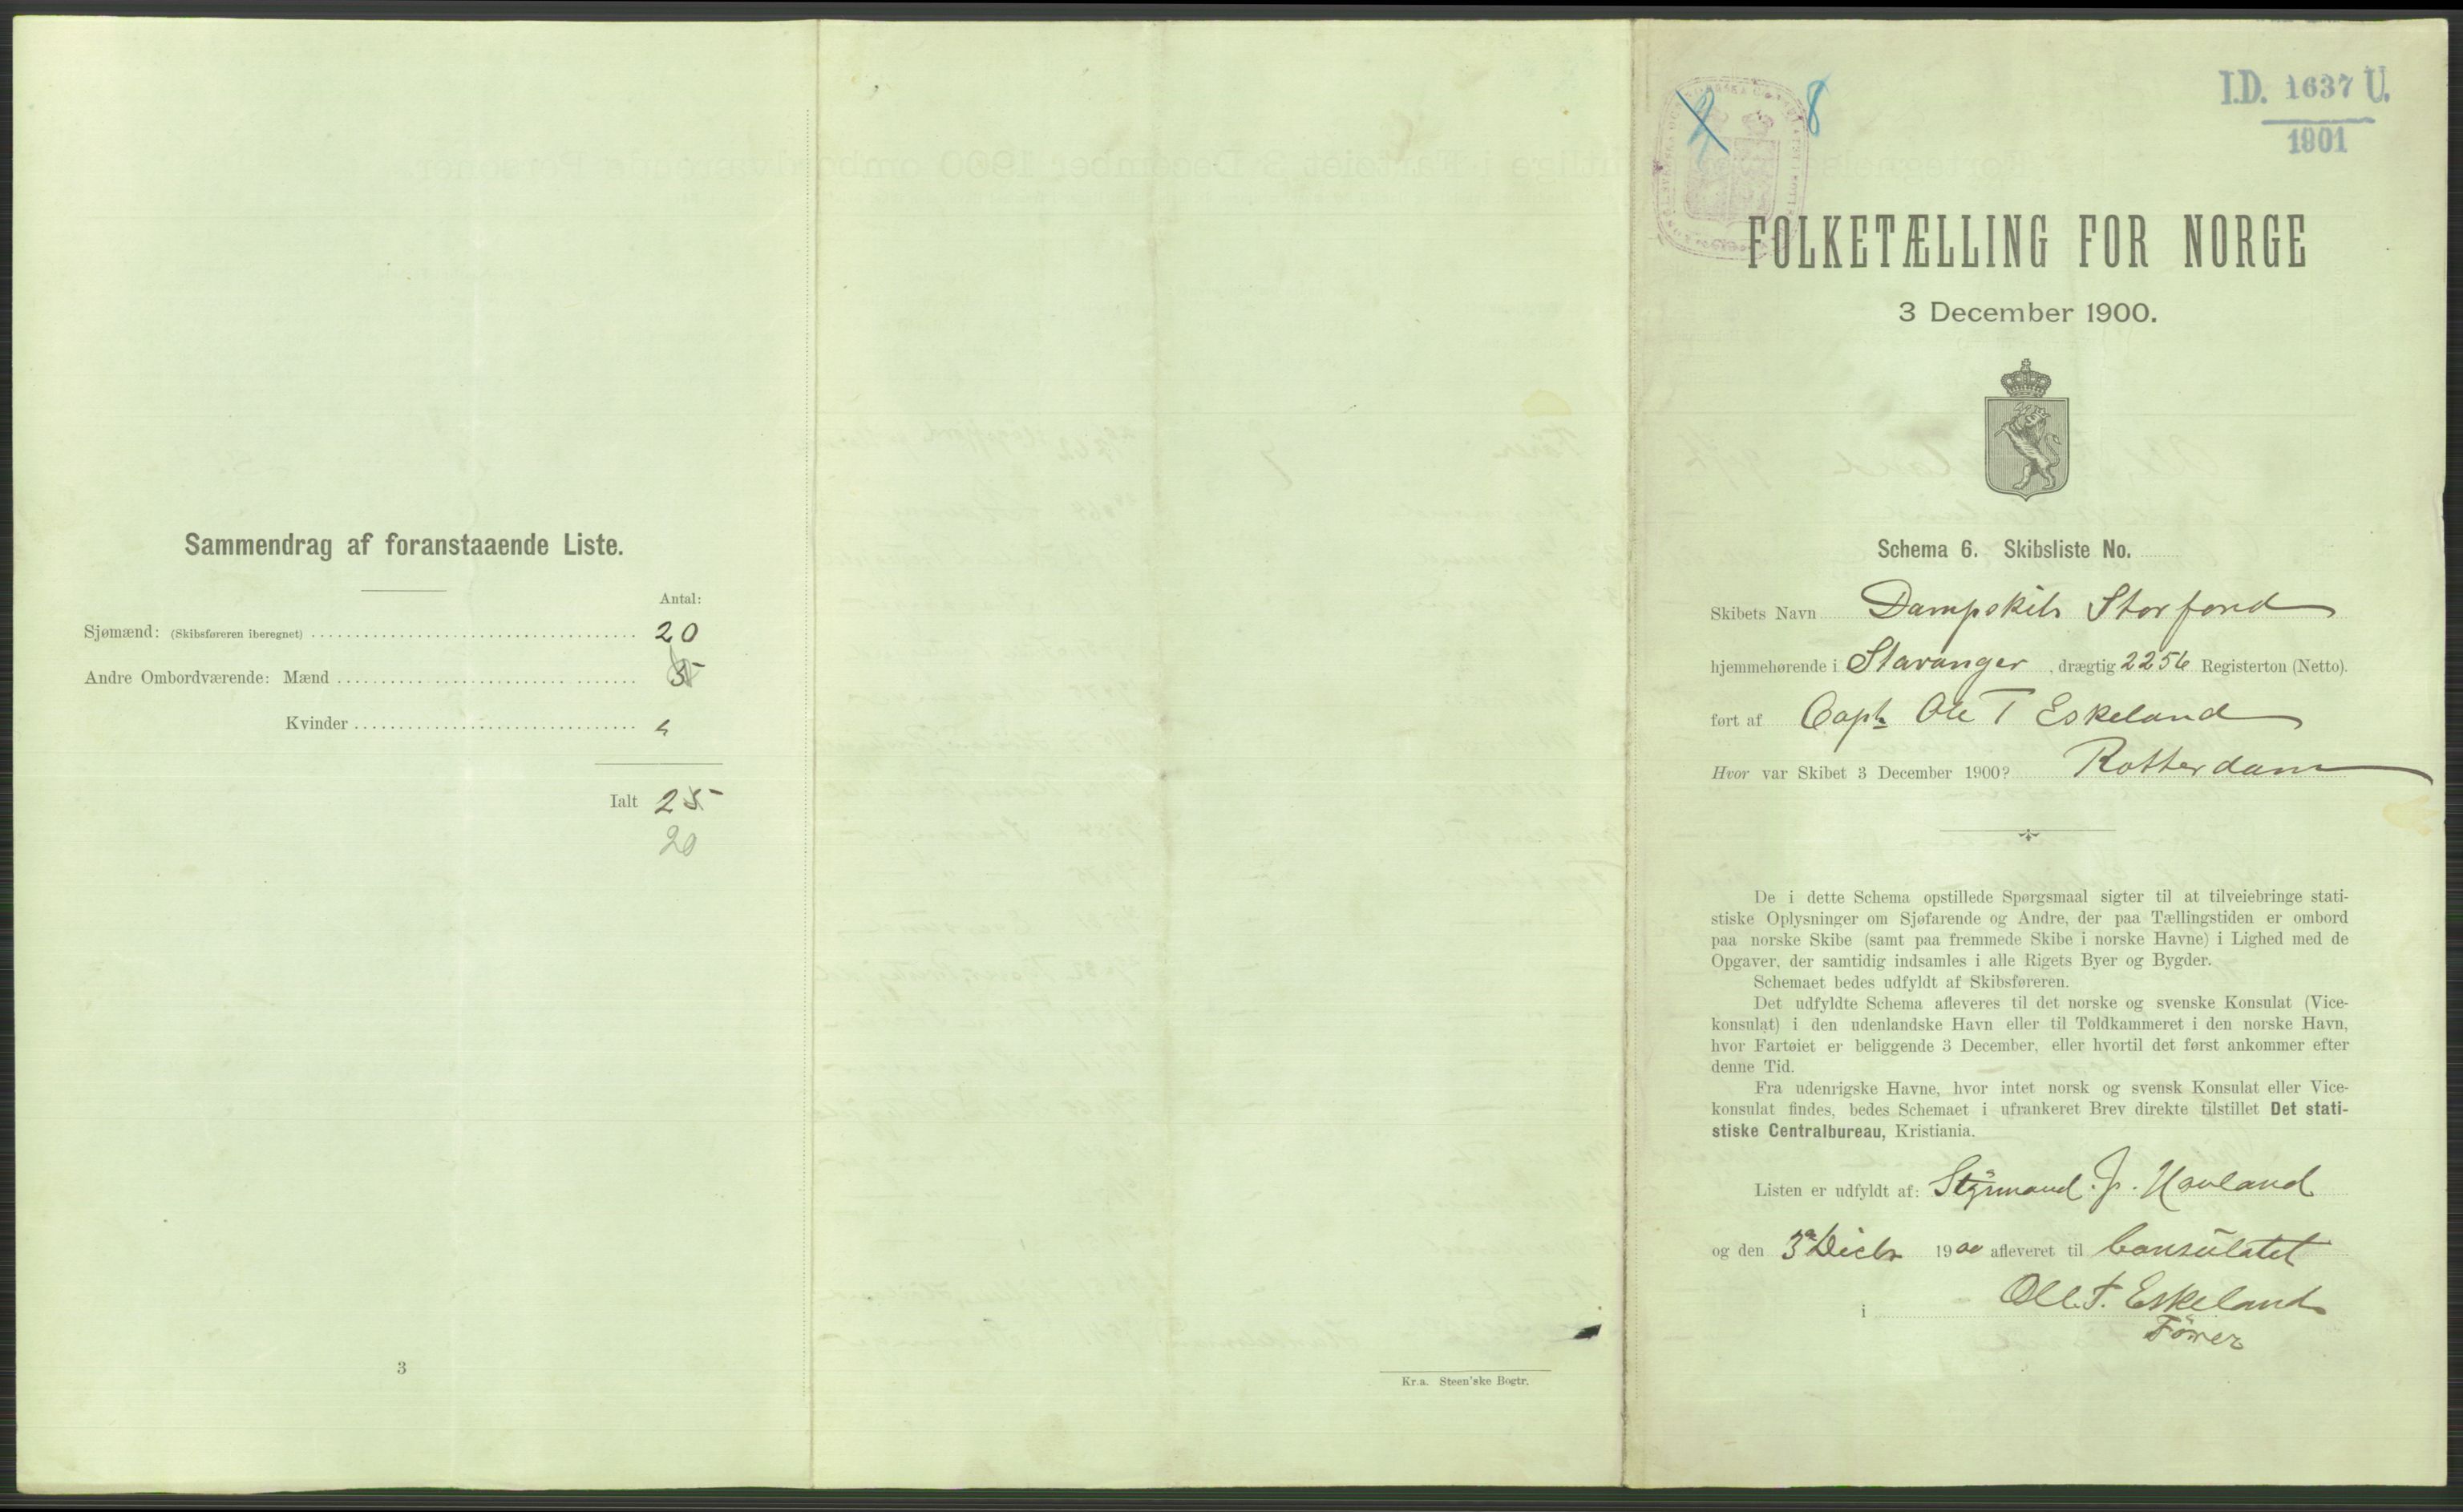 Sammendrag af foranstaaende Liste.
Antal:
Sjømænd: (Skibsføreren iberegnet) 20
Andre Ombordværende: Mænd 5
Kvinder
Ialt 25
20
3
Kr.a. Steen'ske Bogtr.
8
I.D. 1637 U.
1901
FOLKETÆLLING FOR NORGE
3 December 1900.
Schema 6. Skibsliste No.
Skibets Navn Dampskib Storfond
hjemmehørende i Stavanger, drægtig 2256 Registerton (Netto).
ført af Capt Ole T Eskeland
Hvor var Skibet 3 December 1900? Rotterdam
De i dette Schema opstillede Spørgsmaal sigter til at tilveiebringe stati-
stiske Oplysninger om Sjøfarende og Andre, der paa Tællingstiden er ombord
paa norske Skibe (samt paa fremmede Skibe i norske Havne) i Lighed med de
Opgaver, der samtidig indsamles i alle Rigets Byer og Bygder.
Schemaet bedes udfyldt af Skibsføreren.
Det udfyldte Schema afleveres til det norske og svenske Konsulat (Vice-
konsulat) i den udenlandske Havn eller til Toldkammeret i den norske Havn,
hvor Fartøiet er beliggende 3 December, eller hvortil det først ankommer efter
denne Tid.
Fra udenrigske Havne, hvor intet norsk og svensk Konsulat eller Vice-
konsulat findes, bedes Schemaet i ufrankeret Brev direkte tilstillet Det stati-
stiske Centralbureau, Kristiania.
Listen er udfyldt af: Styrmand. J. Havland
og den 3 Decbr 1900 afleveret til Consulatet
i Ole T. Eskeland
Förer